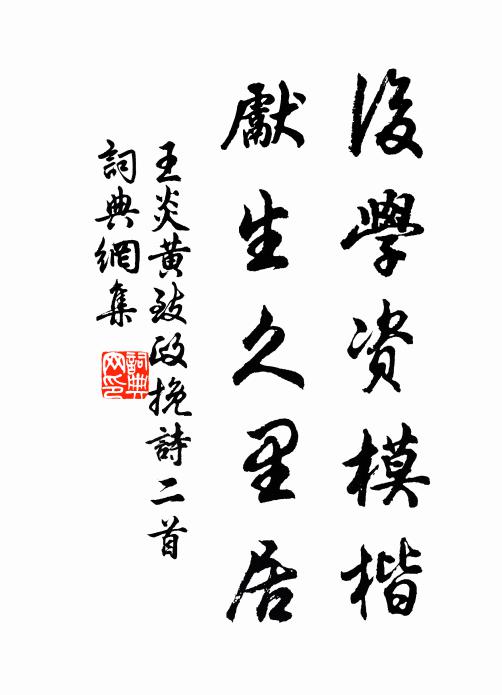 後學資模楷
獻生久里居
王炎黃致政挽詩二首
詞典網集
詞典網印